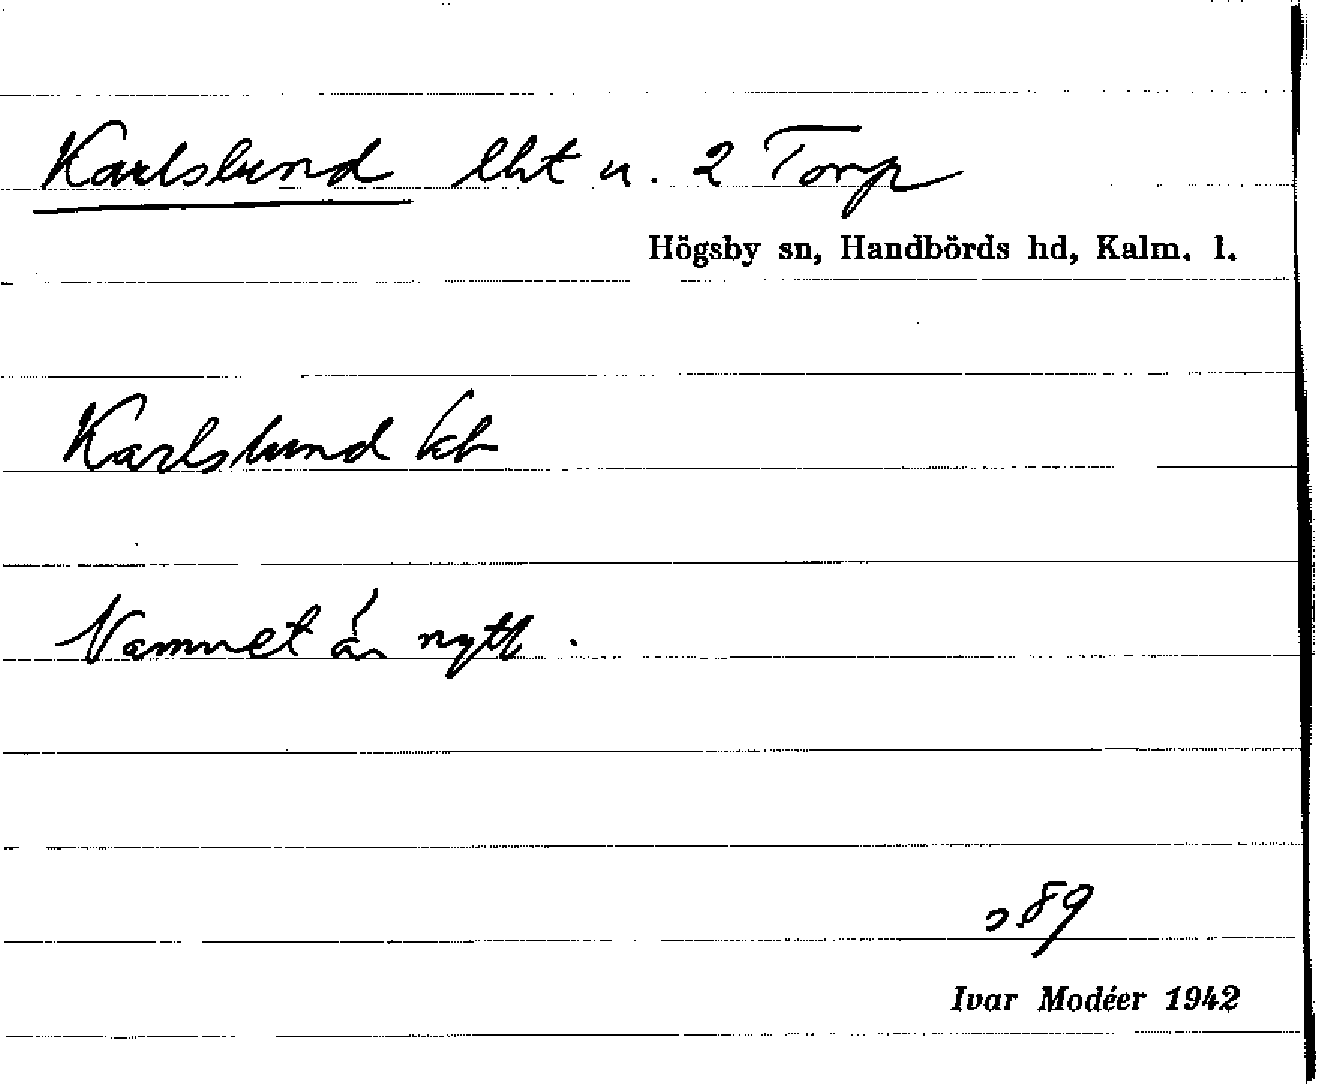 Karlslund lht u. 2 Torp
Högsby sn, Handbörds hd, Kalm. l.
Karlslund kb
Namnet är nytt.
89
Ivar Modéer 1942